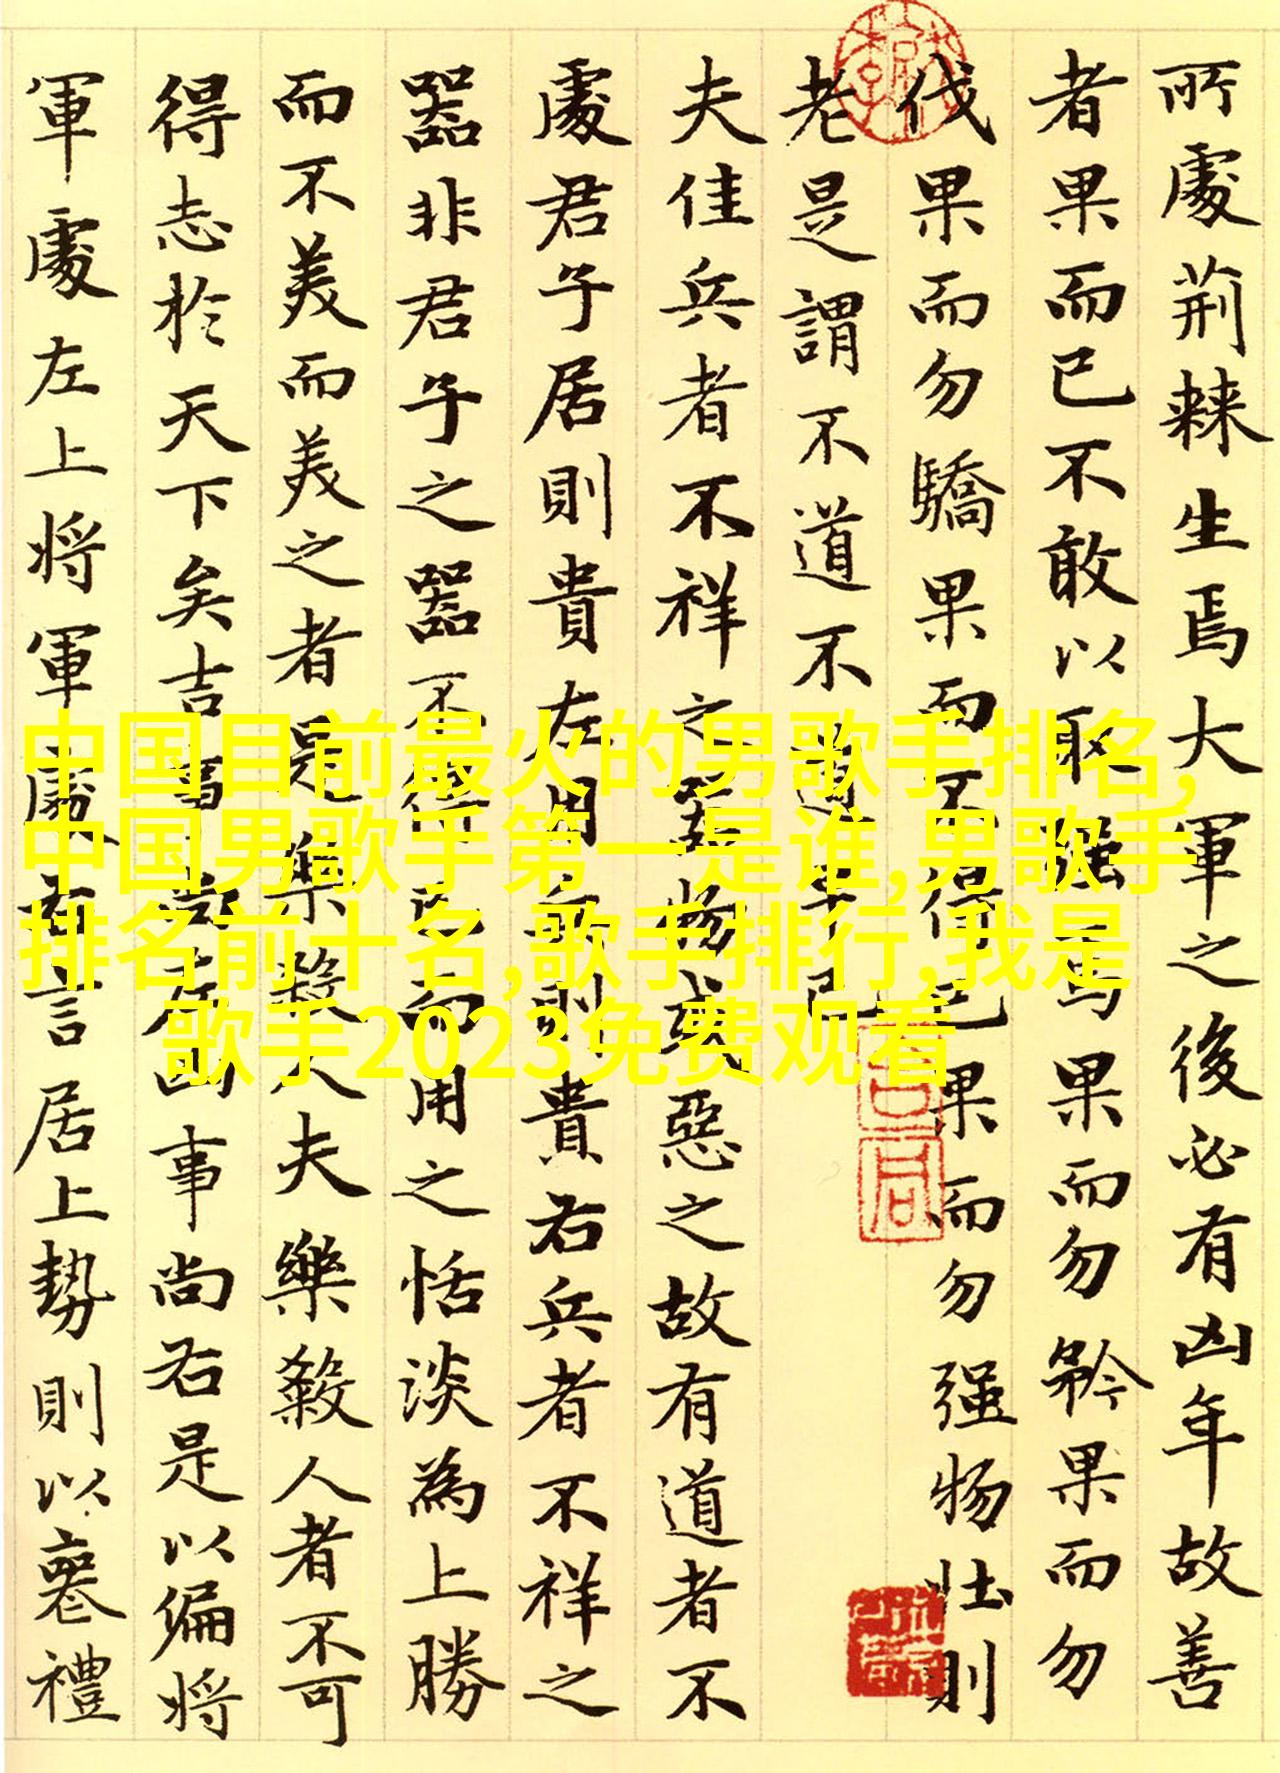 所處荊棘生焉大軍之後必有凶年故善
者果而已不敢以取強焉果而勿矜果而勿
伐果而勿驕果而不得已果而勿强物壮則
老是謂不道不道早已
夫佳兵者不祥之器物或惡之故有道者不
處君子居則貴左用兵則貴右兵者不祥之
器非君子之器不得已而用之恬淡為上勝
而不美而美之者是樂殺人夫樂殺人者不可
得志於天下矣吉事尚左凶事尚右是以偏将
軍處左上将軍處右言居上勢則以喪禮
中国目前最火的男歌手排名,
中国男歌手第一是谁,男歌手
排名前十名,歌手排行,我是
歌手2023免费观看